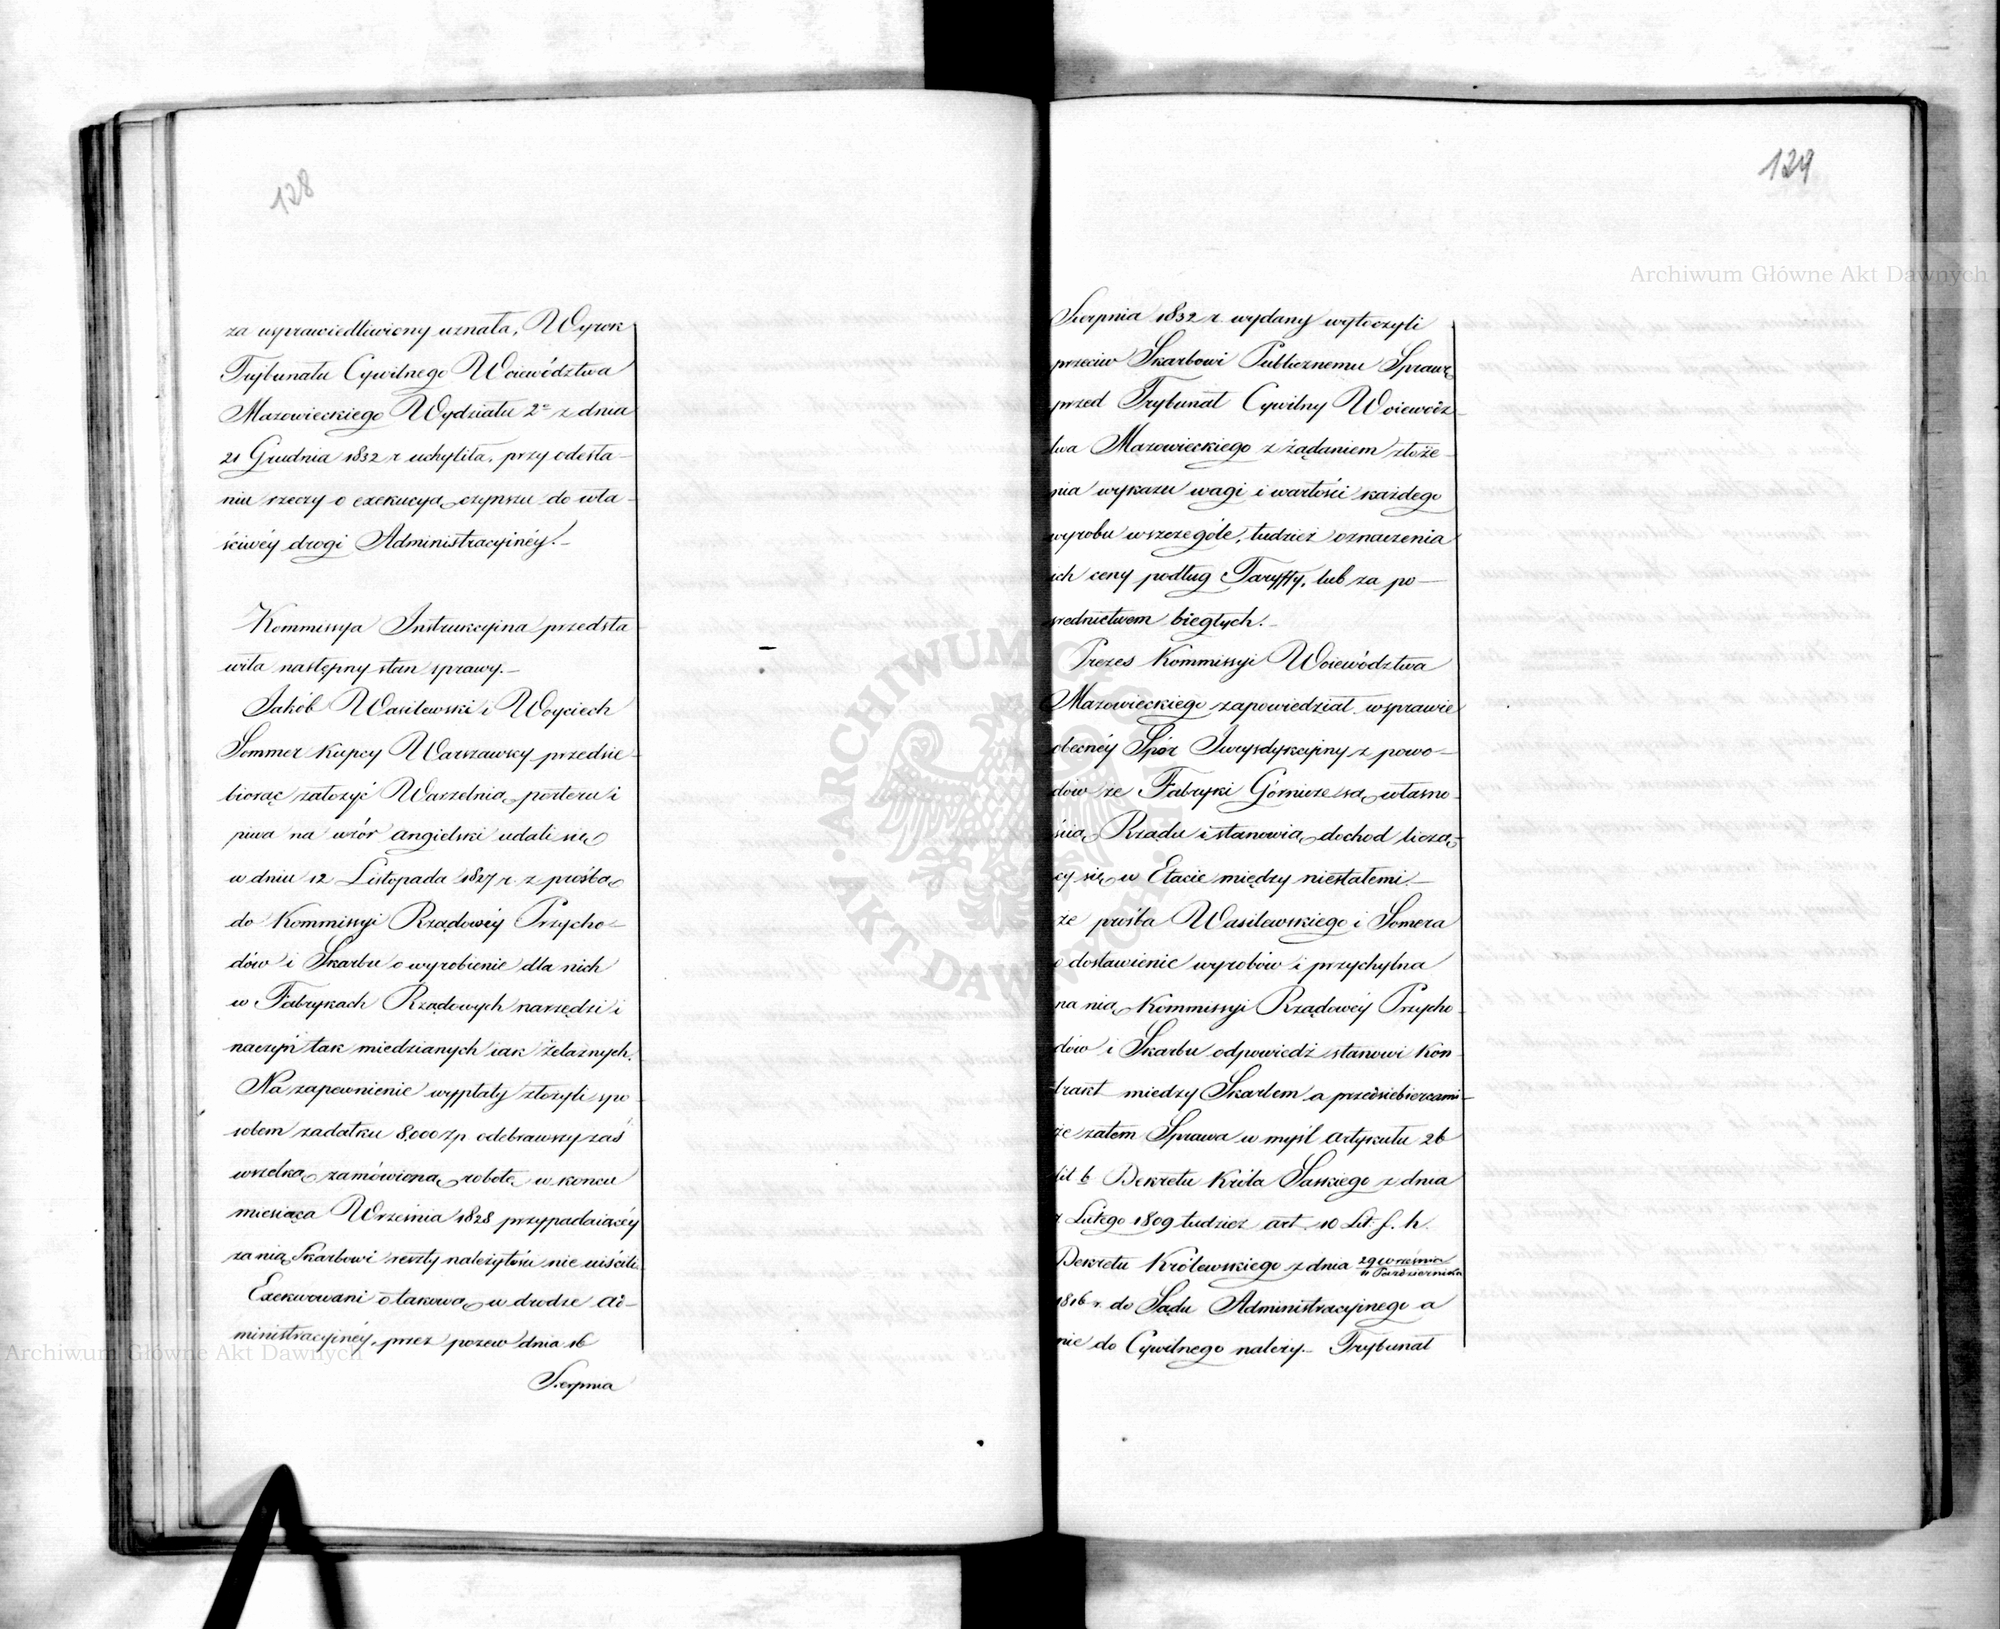 128
za usprawiedliwiony uznała, Wyrok
Trybunału Cywilnego Woiewództwa
Mazowieckiego Wydziału 2º z dnia
21 Grudnia 1832 r uchyliła, przy odesła-
niu rzeczy o exekucyą czynszu do wła-
ściwéy drogi Administracyinéy.-
Kommissya Instrukcyina przedsta
wiła następny stan sprawy.-
Jakób Wasilewski i Woyciech
Sommer kupcy Warszawscy przedsię-
biorąc założyć Warzelnią porteru i
piwa na wzór angielski udali się
w dniu 12 Listopada 1827 r. z prośbą
do Kommissyi Rządowéy Przycho-
dów i Skarbu o wyrobienie dla nich
w Fabrykach Rządowych narzędzi i
naczyń tak miedzianych iak żelaznych.
Na zapewnienie wypłaty złożyli spo-
sobem zadatku 8,000 Zp odebrawszy zaś
wszelką zamówioną robotę w końcu
miesiąca Września 1828 przypadaiącéy
za nią Skarbowi reszty należytości nie uiścili
Exekwowani o takową w drodze Ad-
ministracyinéy, przez pozew dnia 16
Sierpnia
129
Sierpnia 1832 r. wydany wytoczyli
przeciw Skarbowi Publicznemu Sprawę
przed Trybunał Cywilny Woiewódz-
twa Mazowieckiego z żądaniem złoże-
nia wykazu wagi i wartości każdego
wyrobu wszczególe, tudzież oznaczenia
ich ceny podług Taryffy, lub za po-
srednictwem biegłych.-
Prezes Kommissyi Woiewództwa
Mazowieckiego zapowiedział wsprawie
obecnéy Spór Juryzdykcyiny z powo-
dów że Fabryki Górnicze są własno-
ścią Rządu i stanowią dochod liczą-
cy się w Etacie między niestałemi.-
że prośba Wasilewskiego i Somera
o dostawienie wyrobów i przychylna
na nią Kommissyi Rządowéy Przycho-
dów i Skarbu odpowiedź stanowi kon-
trakt miedzy Skarbem a przedsiebiercami-
że zatem Sprawa w myśl artykułu 26
lit b Dekretu Króla Saskiego z dnia
7 Lutego 1809 tudzież art. 10 Lit. f. h.
Dekretu Królewskiego z dnia 29 Września / 11 Października
1816 r. do Sądu Administracyinego a
nie do Cywilnego należy.- Trybunał
Archiwum Główne Akt Dawnych
Archiwum Główne Akt Dawnych
ARCHIWUM GŁÓWNE AKT DAWNYCH